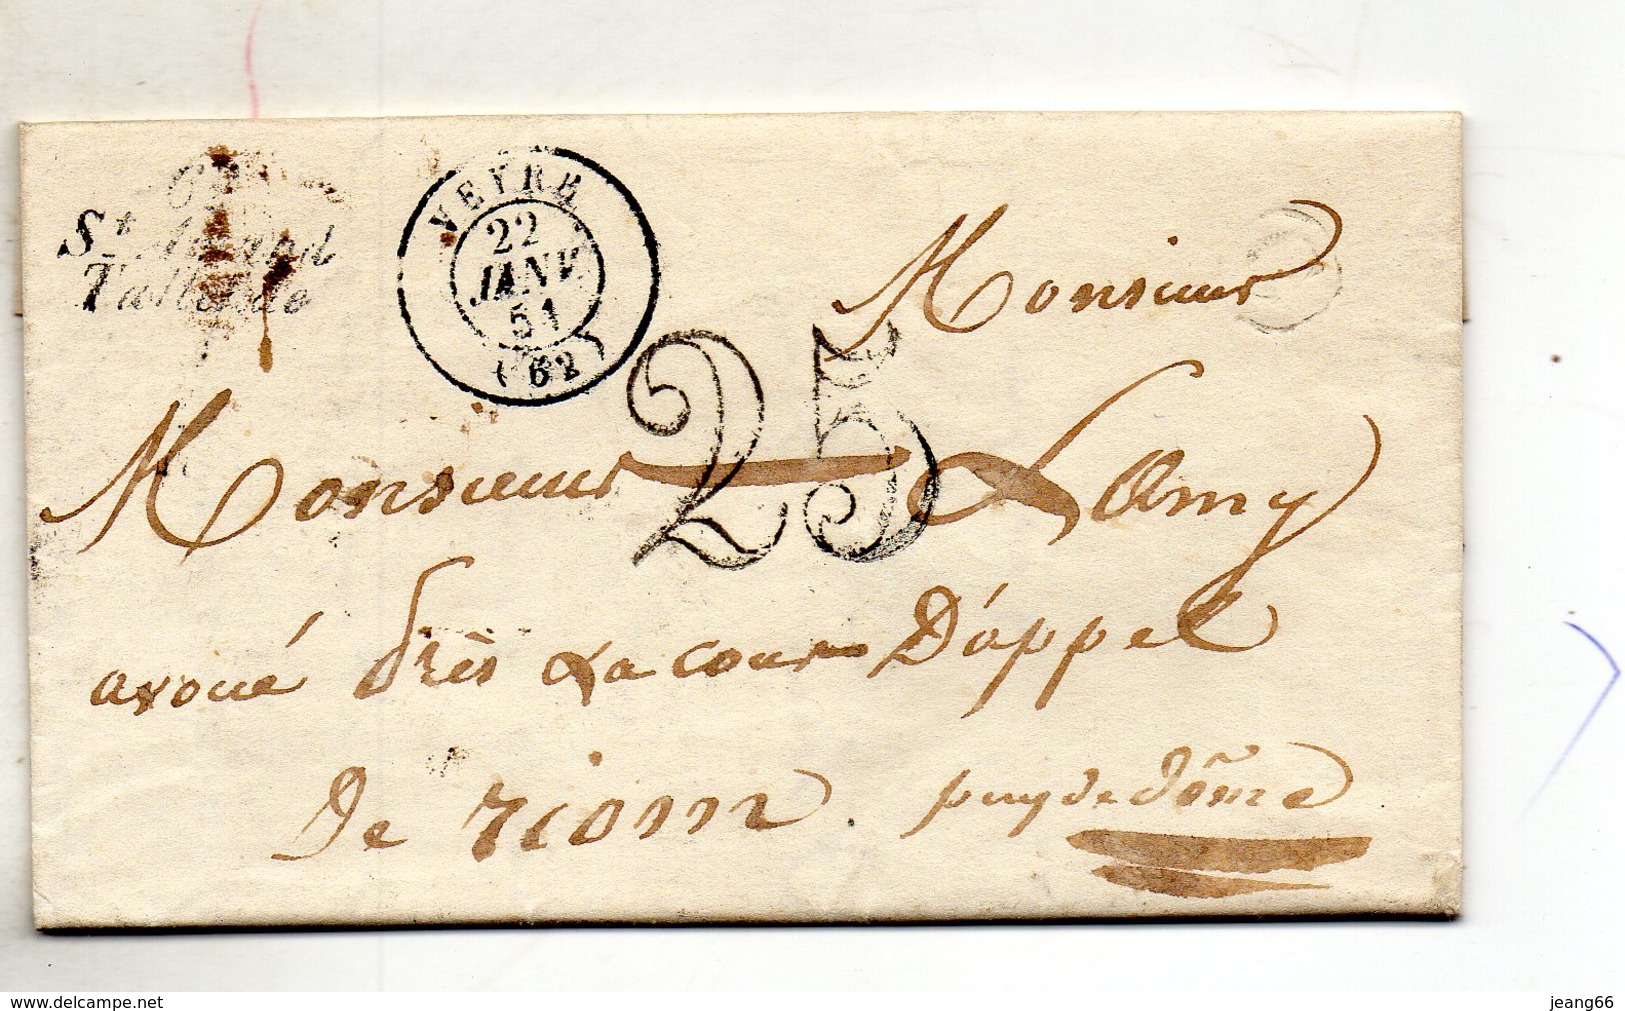 St Amand
Tallende
VEYRE
22
JANV
51
(62)
25
Monsieur
Monsieur Lamy
avoué près La cour D'appel
De riom . puy de dôme
www.delcampe.net
jeang66